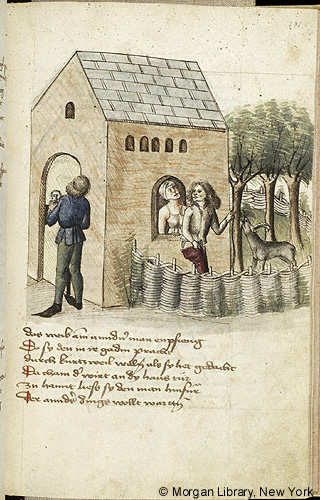 das weib ain anndern man enpfieng
Do sy den in ir gadin pracht
durch kurtzweil wolt als sy het gedacht
Da cham der wirt an dy haus tür
Zu hannt liess sy den man hinfür
Der annder dinge wollt warttn
© Morgan Library, New York